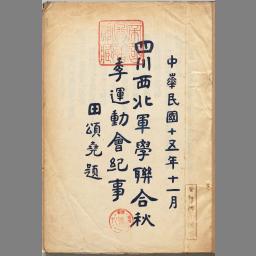 中華民國十五年十一月
四川西北軍學聯合秋
季運動會紀事
田頌堯題